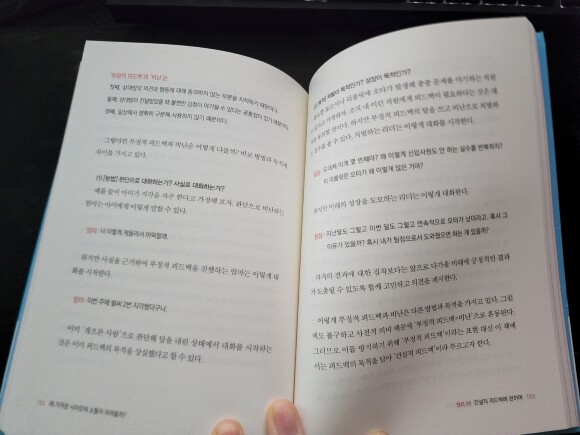 '부정적 피드백'과 '비난'은
첫째, 상대방의 의견과 행동에 대해 동의하지 않는 부분을 지적하기 때문이다.
둘째, 상대방이 전달받았을 때 불편한 감정이 야기될 수 있다는 공통점이 있기 때문이다.
셋째, 일상에서 명확히 구분해 사용하지 않기 때문이다.
그렇다면 부정적 피드백과 비난은 어떻게 다를까? 바로 방법과 목적에
차이를 가지고 있다.
(1) [방법] 판단으로 대화하는가? 사실로 대화하는가?
예를 들어 아이가 지각을 자주 한다고 가정해 보자. 판단으로 비난하는
엄마는 아이에게 이렇게 말할 수 있다.
엄마: 너 이렇게 게을러서 어떡할래.
하지만 사실을 근거하여 부정적 피드백을 진행하는 엄마는 이렇게 대
화를 시작한다.
엄마: 이번 주에 벌써 2번 지각했더구나.
이미 '게으른 사람'으로 판단해 답을 내린 상태에서 대화를 시작하는
것은 이미 피드백의 목적을 상실했다고 할 수 있다.
152 왜 가까운 사이인데 소통이 어려울까?
처벌이 목적인가? 성장이 목적인가?
보고서나 리플릿에 오타가 발생해 종종 문제를 야기하는 직원
있다고 가정하자. 조직 내 이런 직원에게 피드백이 필요하다는 것은 대
동의할 것이다. 하지만 부정적 피드백의 탈을 쓰고 비난으로 처벌하
수 있다. 처벌하려는 리더는 이렇게 대화를 시작한다.
팀장: 도대체 이게 몇 번째야? 왜 이렇게 신입사원도 안 하는 실수를 반복하지?
이 리플릿은 오타가 왜 이렇게 많은 거야?
하지만 미래의 성장을 도모하는 리더는 이렇게 대화한다.
팀장: 지난달도 그렇고 이번 달도 그렇고 연속적으로 오타가 남더라고. 혹시 그
이유가 있을까? 혹시 내가 팀장으로서 도와줬으면 하는 게 있을까?
과거의 결과에 대한 질책보다는 앞으로 다가올 미래에 긍정적인 결과
가 도출될 수 있도록 함께 고민하고 의견을 제시한다.
이렇게 부정적 피드백과 비난은 다른 방법과 목적을 가지고 있다. 그럼
에도 불구하고 사전적 의미 때문에 '부정적 피드백=비난'으로 혼동된다.
그러므로 이를 방지하기 위해 '부정적 피드백'이라는 표현 대신 이 책에
서는 피드백의 목적을 담아 '건설적 피드백'이라 부르고자 한다.
건설적 피드백에 관하여 153